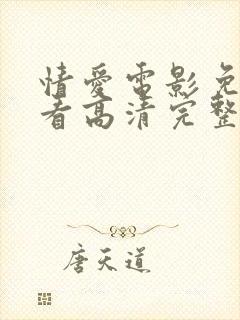 情爱电影免
看高清完整
唐天道